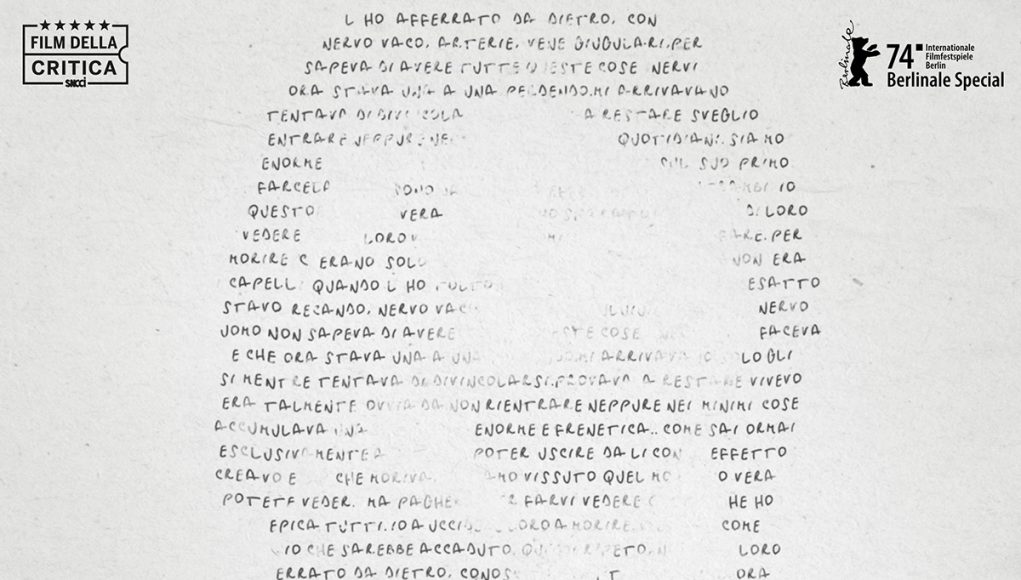 FILM DELLA
CRITICA
SNCCI
74
Internationale
Filmfestspiele
Berlin
Berlinale Special
Berlinale
L HO AFFERRATO DA DIETRO, CON
NERVO VACO, ARTERIE, VENE GIUGULARI, PER
SAPEVA DI AVERE TUTTE QUESTE COSE NERVI
ORA STAVA UNA A UNA PERDENDO. MI ARRIVAVANO
TENTAVA DI A RESTARE SVEGLIO
ENTRARE NEPPURE NEI QUOTIDIANI. SIAMO
ENORME SUL SUO PRIMO
FARCELA SONO IO
QUESTO VERA DI LORO
VEDERE LORO FARE. PER
MORIRE C ERANO SOLO NON ERA
CAPELLI QUANDO L HO ESATTO
STAVO RECANDO, NERVO NERVO
UOMO NON SAPEVA DI AVERE COSE FACEVA
E CHE ORA STAVA UNA A UNA ARRIVAVA LOGLI
SI MENTRE TENTAVA DI DIVINCOLARSI. PROVAVA A RESTARE VIVEVO
ERA TALMENTE OVVIA DA NON RIENTRARE NEPPURE NEI MINIMI COSE
ACCUMULAVA UNA ENORME E FRENETICA.. COME SAI ORMAI
ESCLUSIVAMENTE A POTER USCIRE DA LI CON EFFETTO
CREAVO E CHE MORIVA VISSUTO QUEL O VERA
MA FARVI VEDERE HE HO
EPICA TUTTI. IO A LORO A MORIRE COME
IO CHE SAREBBE ACCADUTO, LORO
ERRATO DA DIETRO, ORA